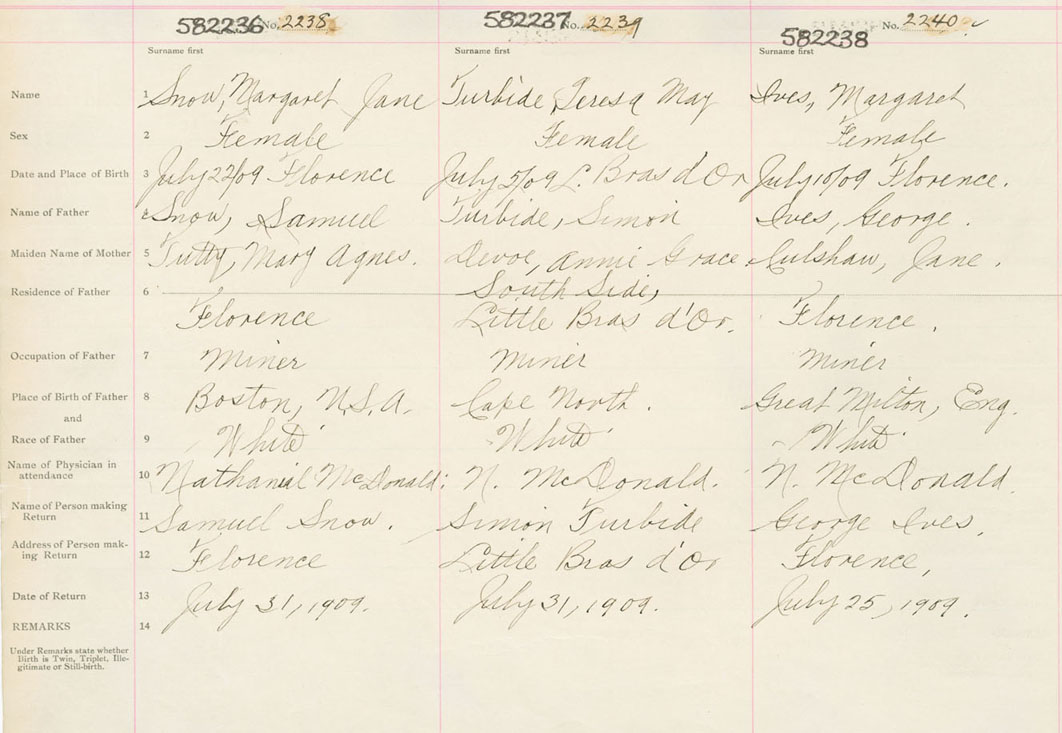 582236 No. 2238 582237 No. 2239 582238 No. 2240
Surname first Surname first Surname first
Name 1 Snow, Margaret Jane Turbide, Teresa May Ives, Margaret
Sex 2 Female Female Female
Date and Place of Birth 3 July 22/09 Florence July 5/09 L. Bras d'Or July 10/09 Florence.
Name of Father 4 Snow, Samuel Turbide, Simon Ives, George.
Maiden Name of Mother 5 Tutty, Mary Agnes. Devoe, Annie Grace Culshaw, Jane.
Residence of Father 6 South Side,
Florence Little Bras d'Or. Florence.
Occupation of Father 7 Miner Miner Miner
Place of Birth of Father 8 Boston, U.S.A. Cape North. Great Milton, Eng.
and
Race of Father 9 White White White
Name of Physician in
attendance 10 Nathanial McDonald. N. McDonald. N. McDonald.
Name of Person making
Return 11 Samuel Snow. Simon Turbide George Ives,
Address of Person mak-
ing Return 12 Florence Little Bras d'Or Florence,
Date of Return 13 July 31, 1909. July 31, 1909. July 25, 1909.
REMARKS 14
Under Remarks state whether
Birth is Twin, Triplet, Ille-
gitimate or Still-birth.